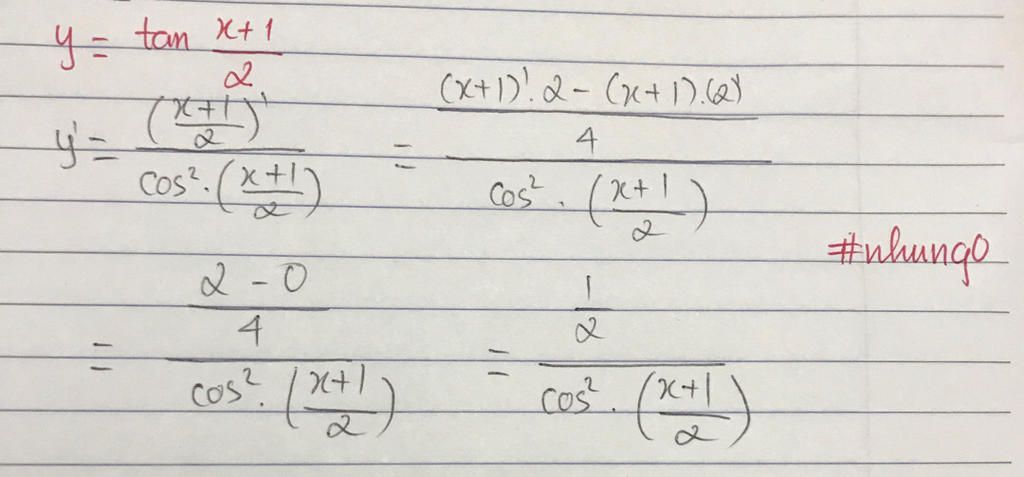 y = tan (x+1)/2
y' = ((x+1)/2)' / cos².((x+1)/2) = (((x+1)'.2 - (x+1).(2)')/4) / cos².((x+1)/2)
#nhung0
= ((2-0)/4) / cos².((x+1)/2) = (1/2) / cos².((x+1)/2)